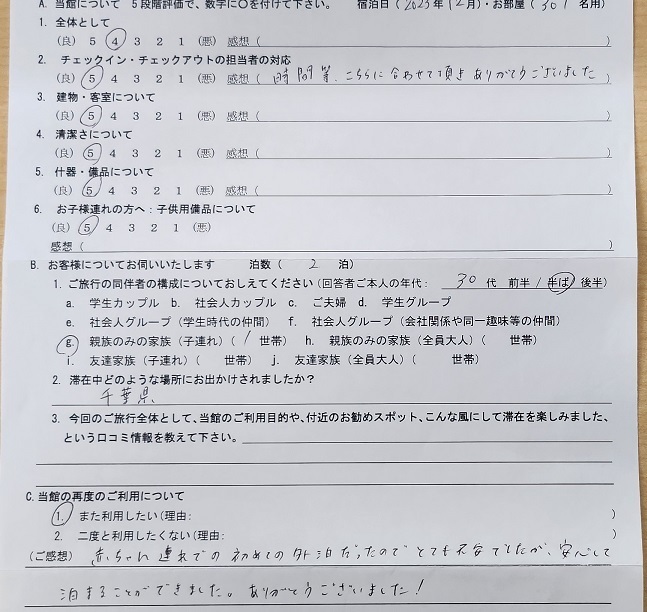 A. 当館について 5段階評価で、数字に○を付けて下さい。 宿泊日（2023年12月）・お部屋（301 名用）
1. 全体として
（良） 5 4 3 2 1 （悪） 感想（ ）
2. チェックイン・チェックアウトの担当者の対応
（良） 5 4 3 2 1 （悪） 感想（時間等、こちらに合わせて頂きありがとうございました）
3. 建物・客室について
（良） 5 4 3 2 1 （悪） 感想（ ）
4. 清潔さについて
（良） 5 4 3 2 1 （悪） 感想（ ）
5. 什器・備品について
（良） 5 4 3 2 1 （悪） 感想（ ）
6. お子様連れの方へ：子供用備品について
（良） 5 4 3 2 1 （悪）
感想（ ）
B. お客様についてお伺いいたします 泊数（ 2 泊）
1. ご旅行の同伴者の構成についておしえてください（回答者ご本人の年代： 30 代 前半 / 半ば 後半）
a. 学生カップル b. 社会人カップル c. ご夫婦 d. 学生グループ
e. 社会人グループ（学生時代の仲間） f. 社会人グループ（会社関係や同一趣味等の仲間）
g. 親族のみの家族（子連れ）（ 1 世帯） h. 親族のみの家族（全員大人）（ 世帯）
i. 友達家族（子連れ）（ 世帯） j. 友達家族（全員大人）（ 世帯）
2. 滞在中どのような場所にお出かけされましたか？
千葉県
3. 今回のご旅行全体として、当館のご利用目的や、付近のお勧めスポット、こんな風にして滞在を楽しみました、
という口コミ情報を教えて下さい。
C. 当館の再度のご利用について
1. また利用したい（理由： ）
2. 二度と利用したくない（理由： ）
（ご感想） 赤ちゃん連れでの初めての外泊だったのでとても不安でしたが、安心して
泊まることができました。ありがとうございました！